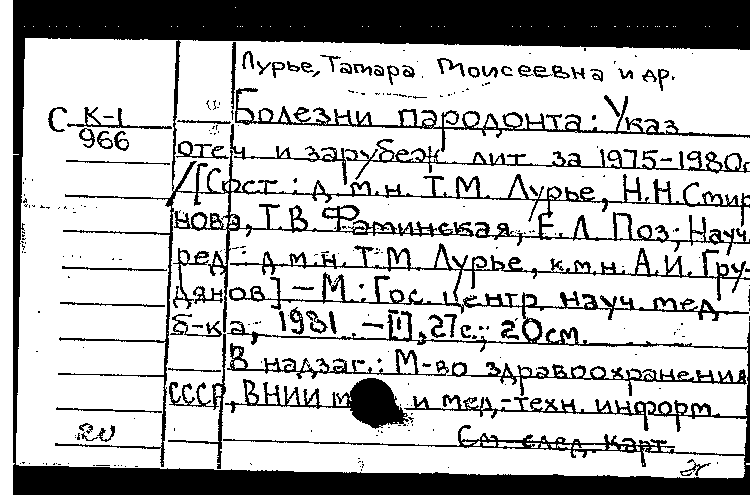 Лурье, Тамара Моисеевна и др.
С К-1
966
Болезни пародонта: Указ.
отеч. и зарубеж. лит. за 1975-1980г
/[Сост.: д.м.н. Т.М. Лурье, Н.Н. Смир-
нова, Т.В. Фаминская, Е.Л. Поз; Науч.
ред.: д.м.н. Т.М. Лурье, к.м.н. А.И. Гру-
дянов] – М.: Гос. центр. науч. мед.
б-ка, 1981. – [1], 27с.; 20см.
В надзаг.: М-во здравоохранения
СССР, ВНИИ и мед.-техн. информ.
См. след. карт.